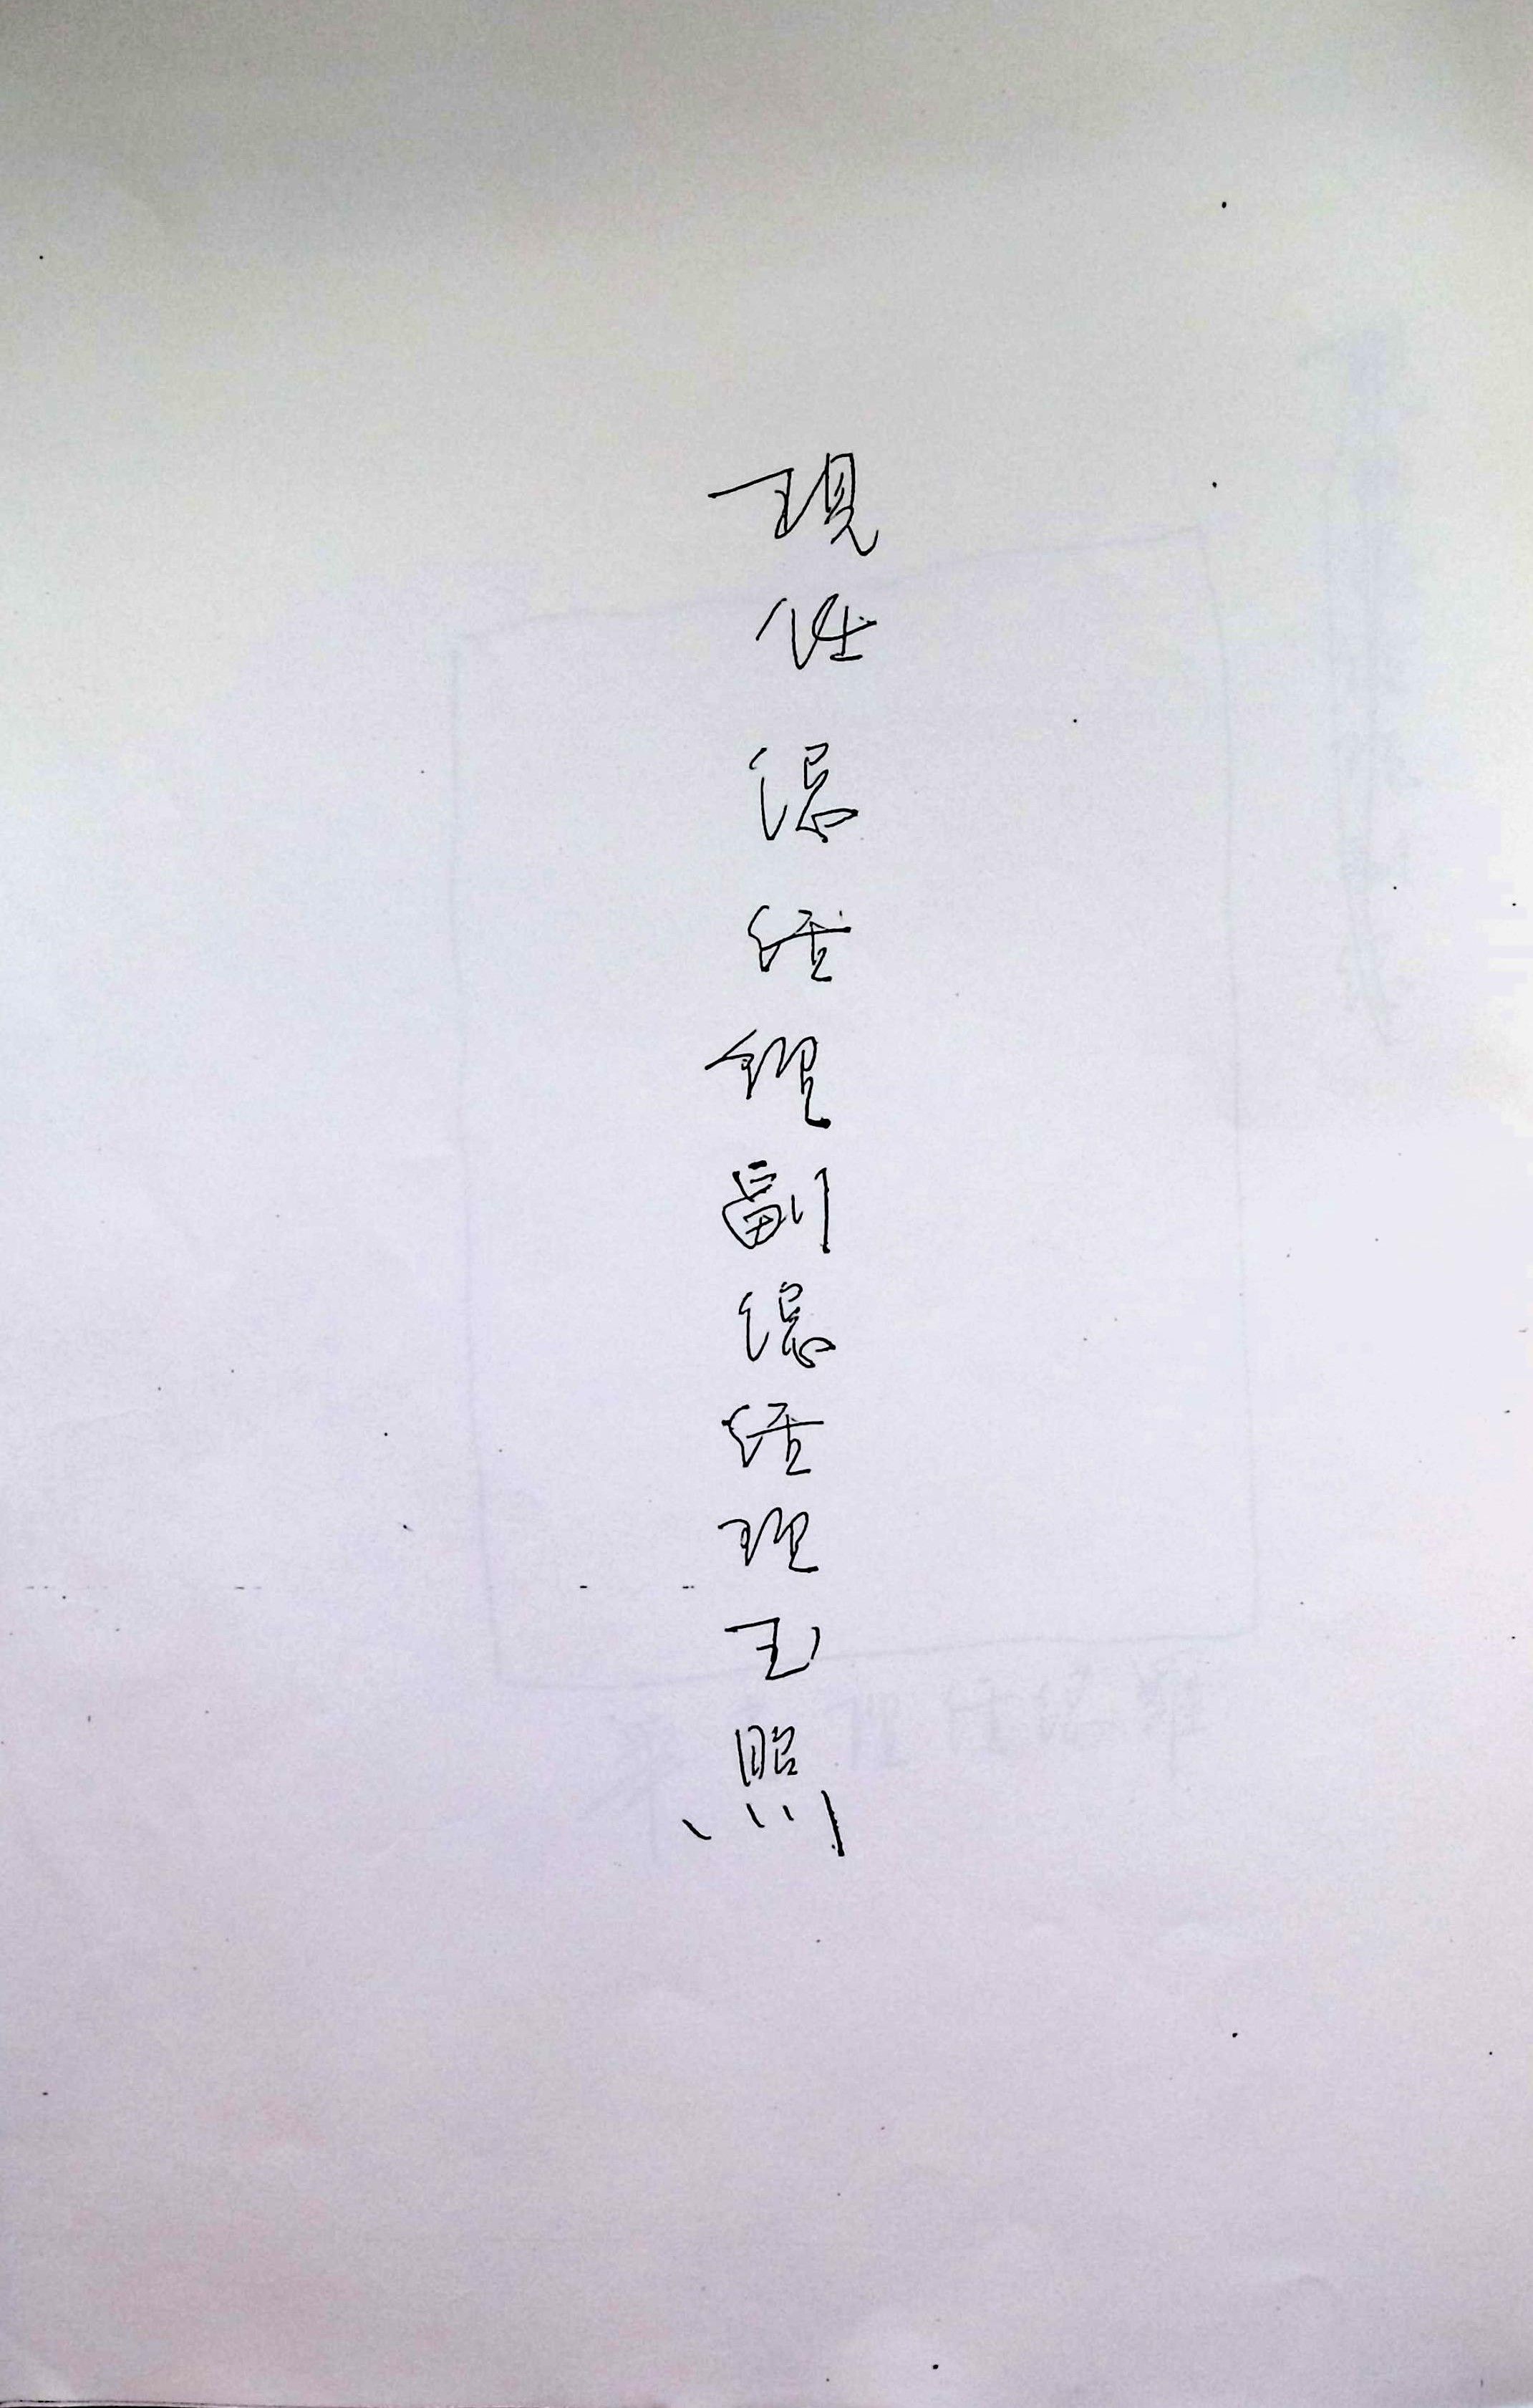 現任總經理副總經理玉照